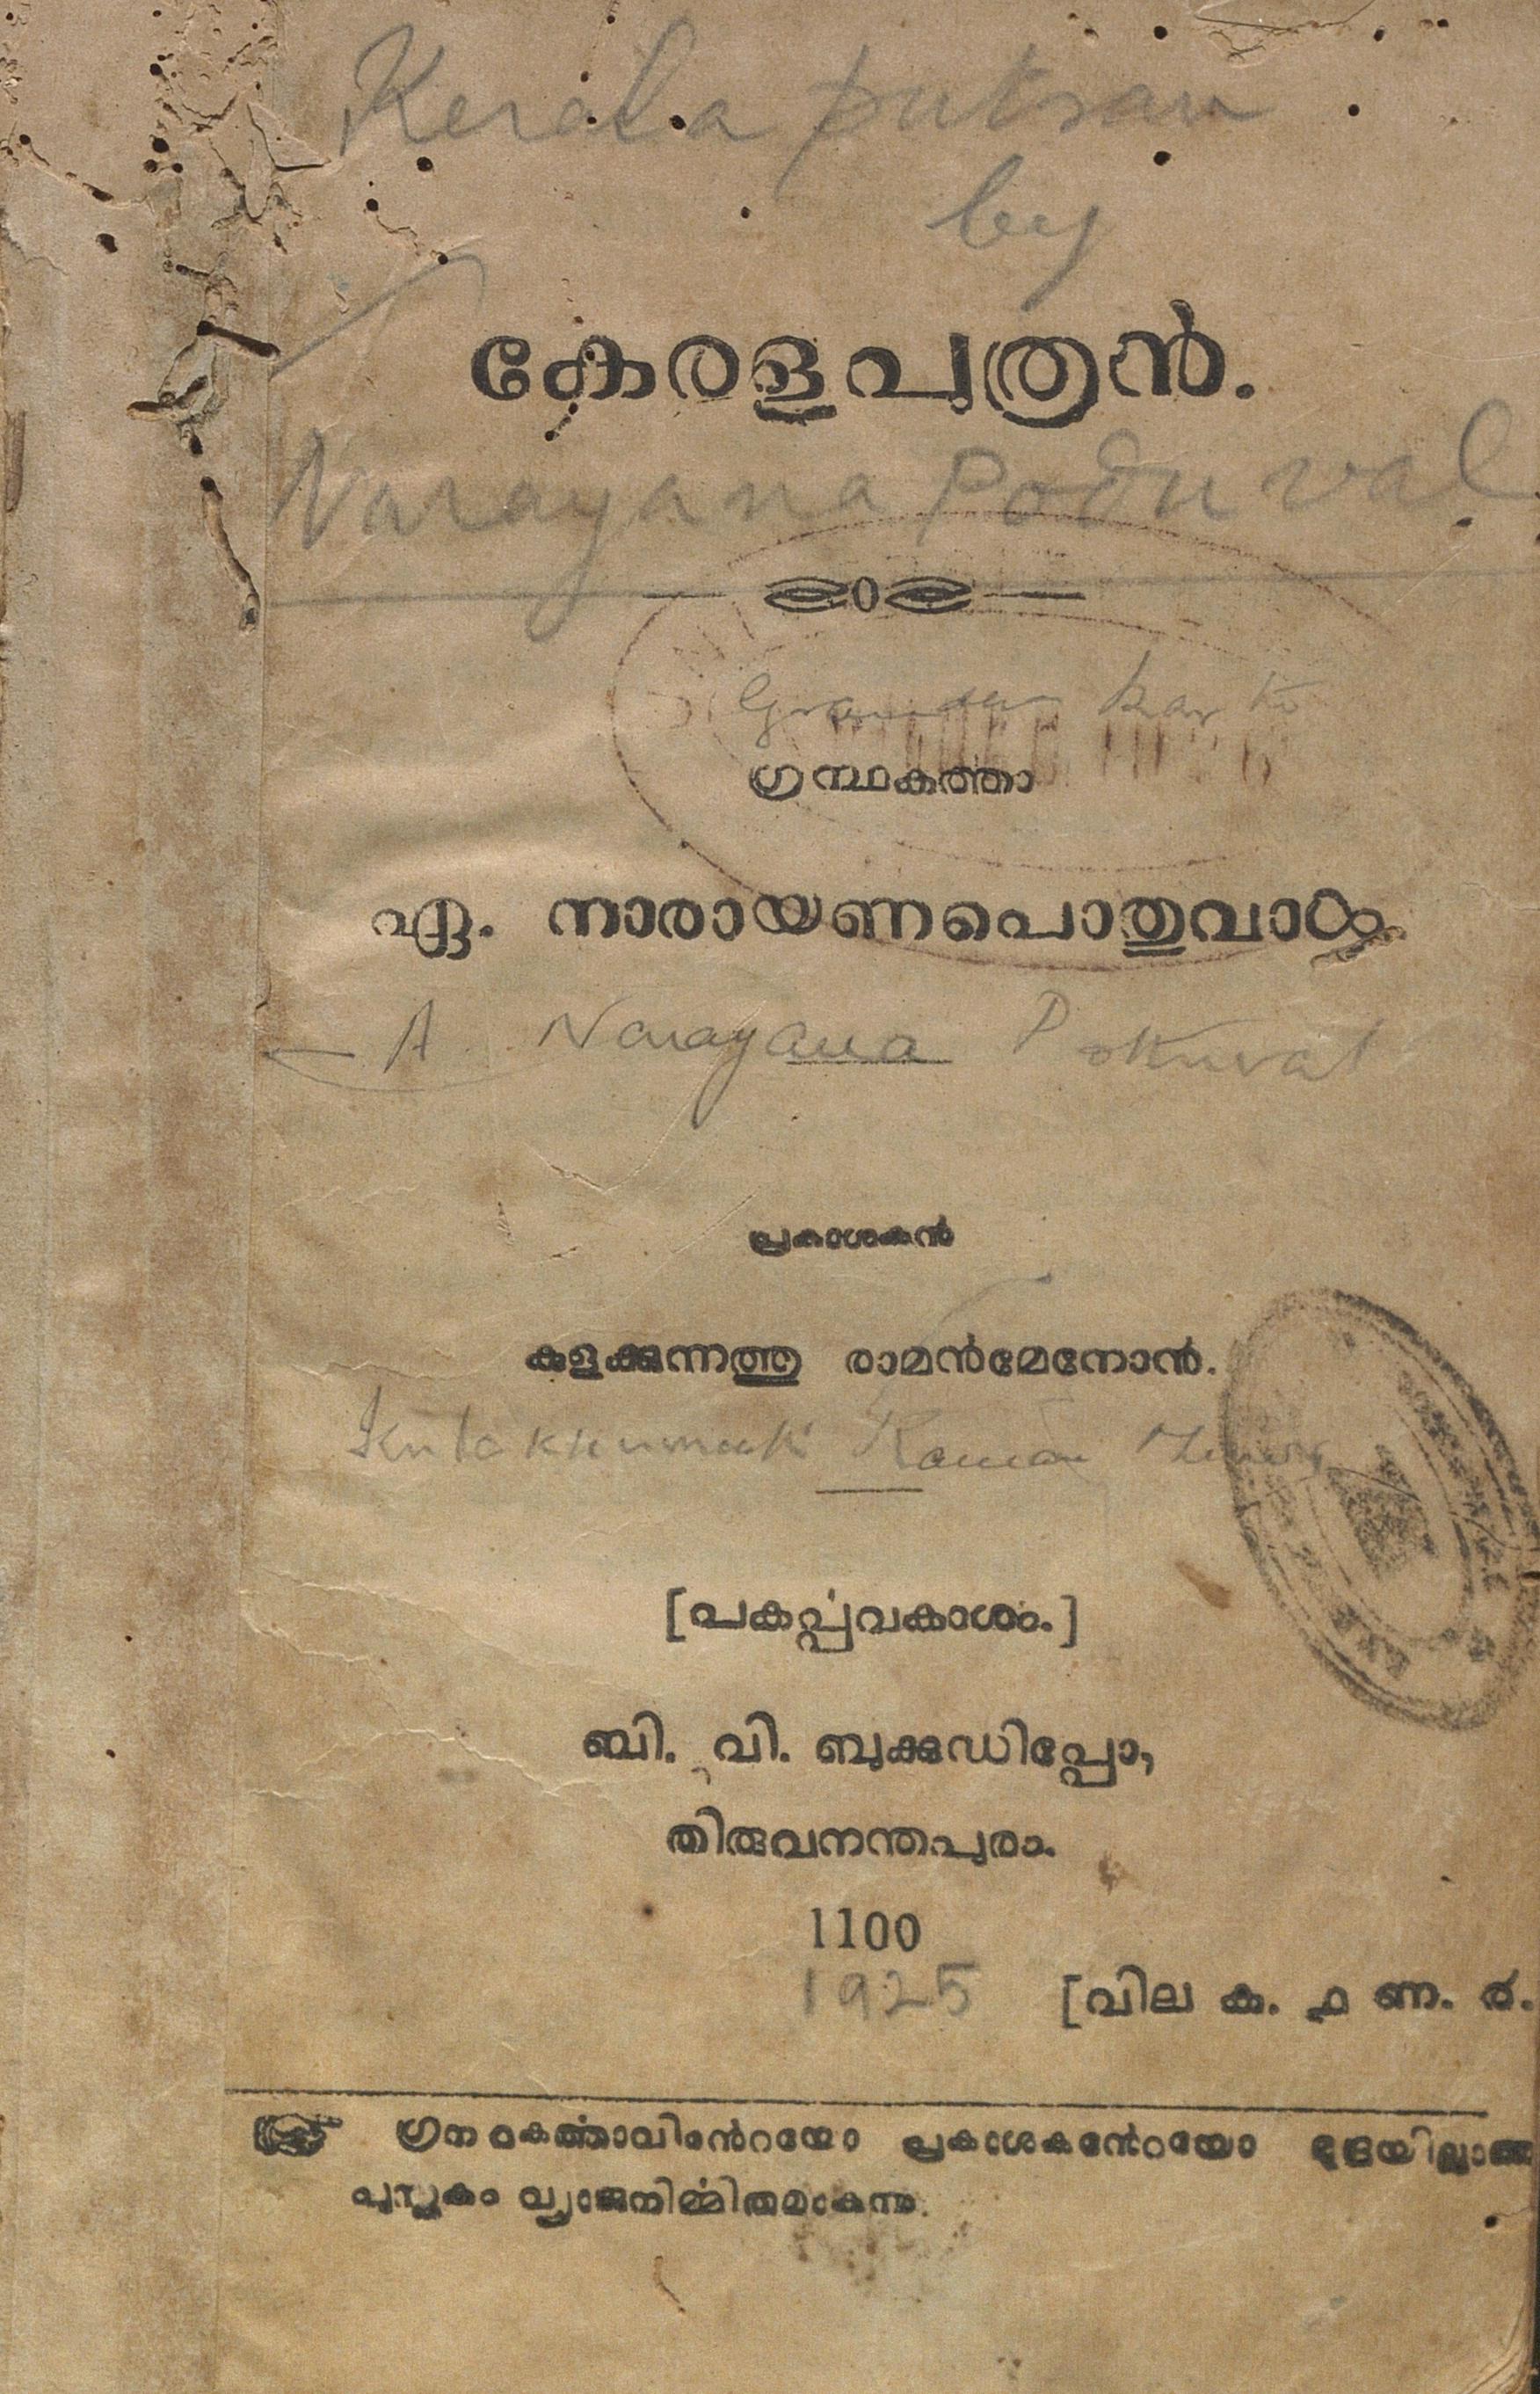 Kerala putran
by
കേരളപുത്രൻ.
Narayana Poduval
ഗ്രന്ഥകത്താ
ഏ. നാരായണപൊതുവാൾ.
A Narayana Pothuval
പ്രകാശകൻ
കുളക്കുന്നത്തു രാമൻമേനോൻ.
Raman
[പകൎപ്പവകാശം.]
ബി. വി. ബുക്കുഡിപ്പോ,
തിരുവനന്തപുരം.
1100
1925 [വില ക. ൧ ണ. ൪.
ഗ്രന്ഥകൎത്താവിൻറയോ പ്രകാശകൻേറയോ മുദ്രയില്ലാത്ത
പുസ്തകം വ്യാജനിൎമ്മിതമാകുന്നു.